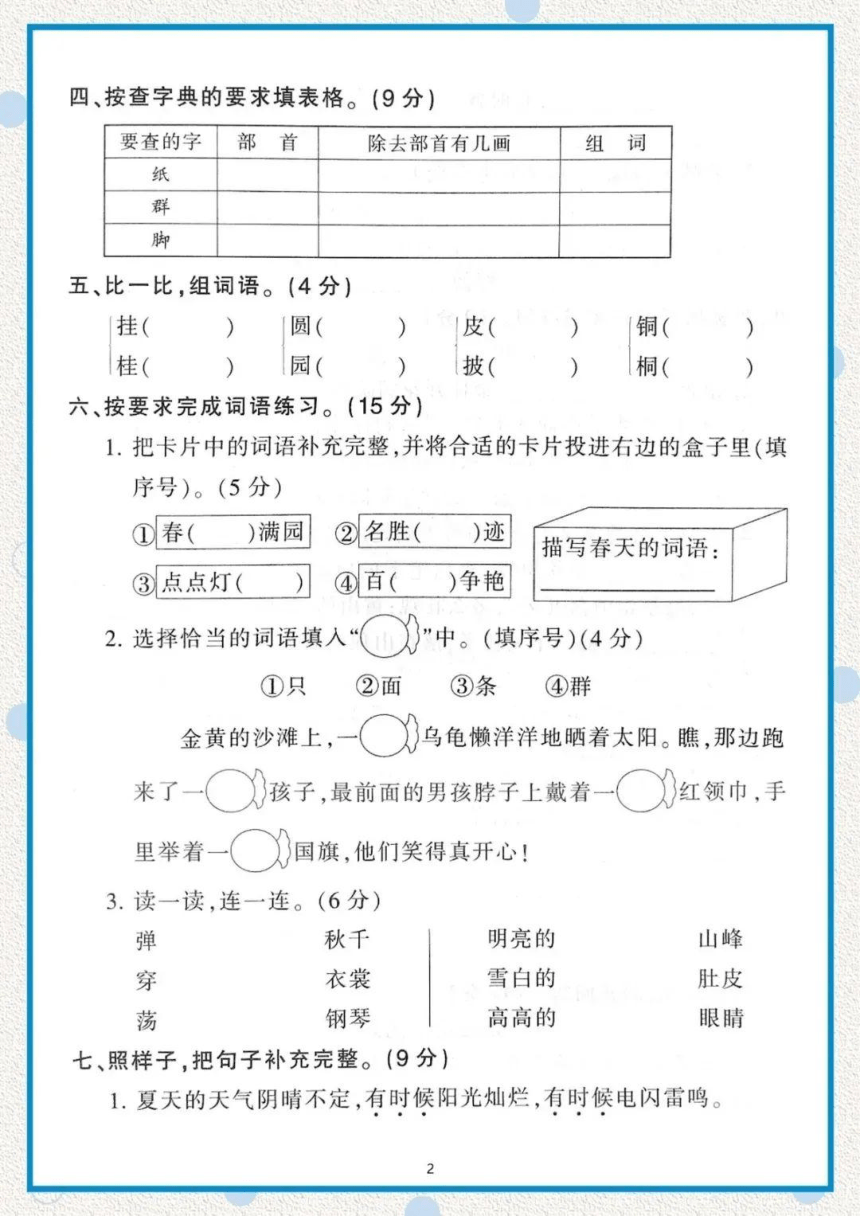 四、按查字典的要求填表格。(9分)
要查的字 部 首 除去部首有几画 组 词
纸
群
脚
五、比一比,组词语。(4分)
挂( ) 圆( ) 皮( ) 铜( )
桂( ) 园( ) 披( ) 桐( )
六、按要求完成词语练习。(15分)
1. 把卡片中的词语补充完整,并将合适的卡片投进右边的盒子里(填
序号)。(5分)
①春( )满园 ②名胜( )迹
描写春天的词语:
③点点灯( ) ④百( )争艳
2. 选择恰当的词语填入“ ”中。(填序号)(4分)
①只 ②面 ③条 ④群
金黄的沙滩上,一 乌龟懒洋洋地晒着太阳。瞧,那边跑
来了一 孩子,最前面的男孩脖子上戴着一 红领巾,手
里举着一 国旗,他们笑得真开心!
3. 读一读,连一连。(6分)
弹 秋千 明亮的 山峰
穿 衣裳 雪白的 肚皮
荡 钢琴 高高的 眼睛
七、照样子,把句子补充完整。(9分)
1. 夏天的天气阴晴不定,有时候阳光灿烂,有时候电闪雷鸣。
2